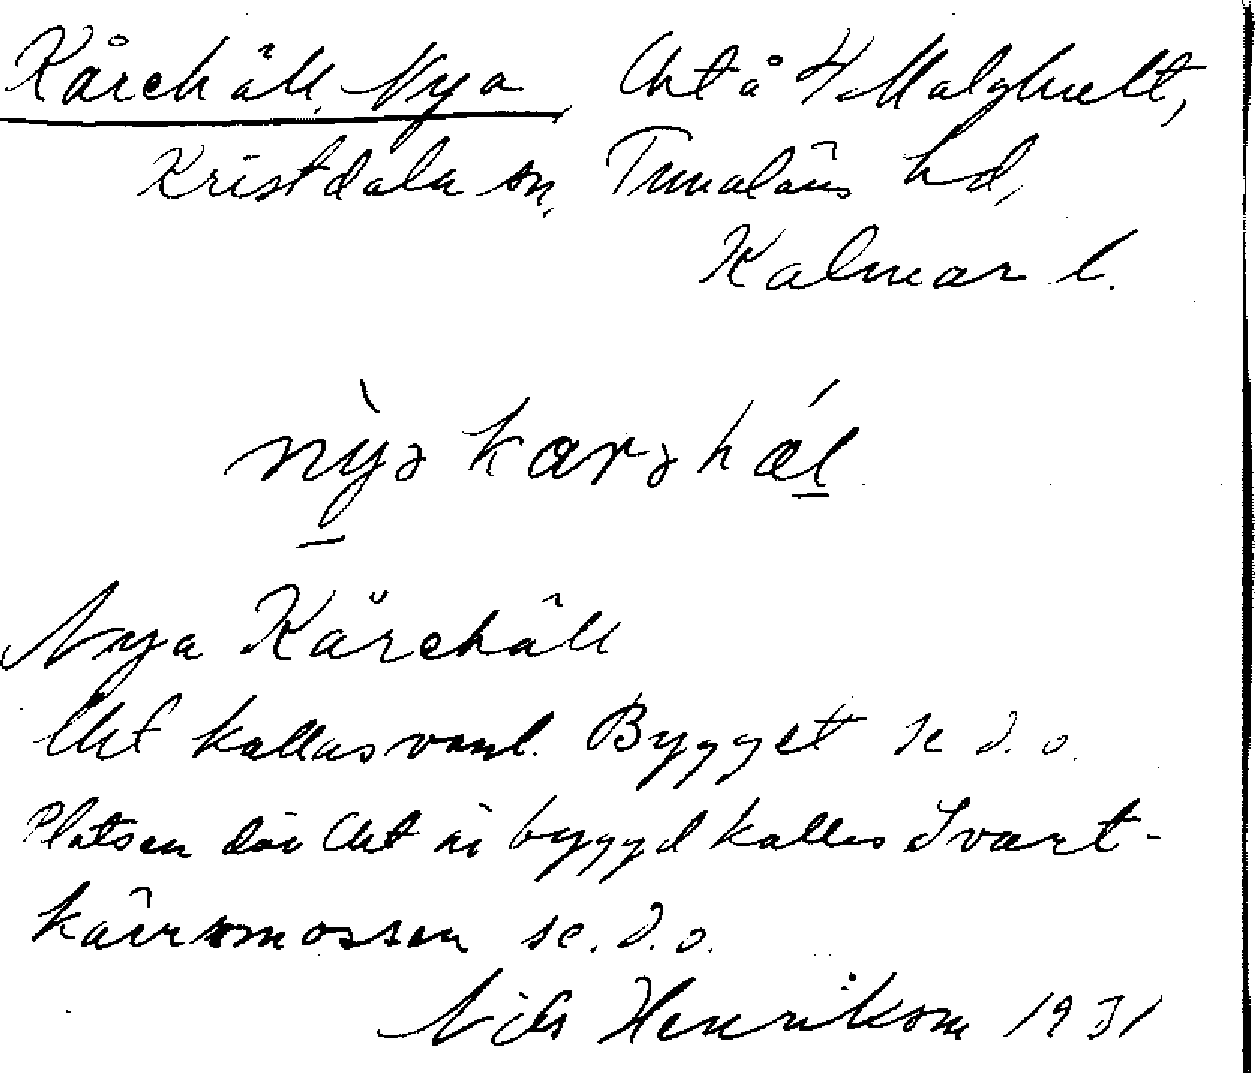 Kårehäll, Nya Lht å 4 Malghult,
Kristdala sn, Tunaläns hd,
Kalmar l.
nỳə karəhǽl
Nya Kärehäll
Lht kallas vanl. Bygget se d. o.
Platsen där Lht är byggd kallas Svart-
kärrsmossen se. d. o.
Nils Henrikson 1931